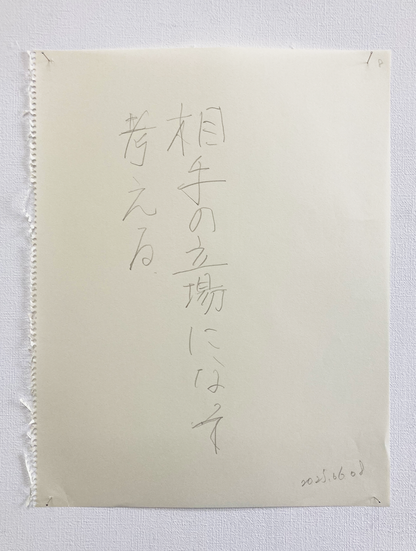 相手の立場になって
考える
2025.06.08